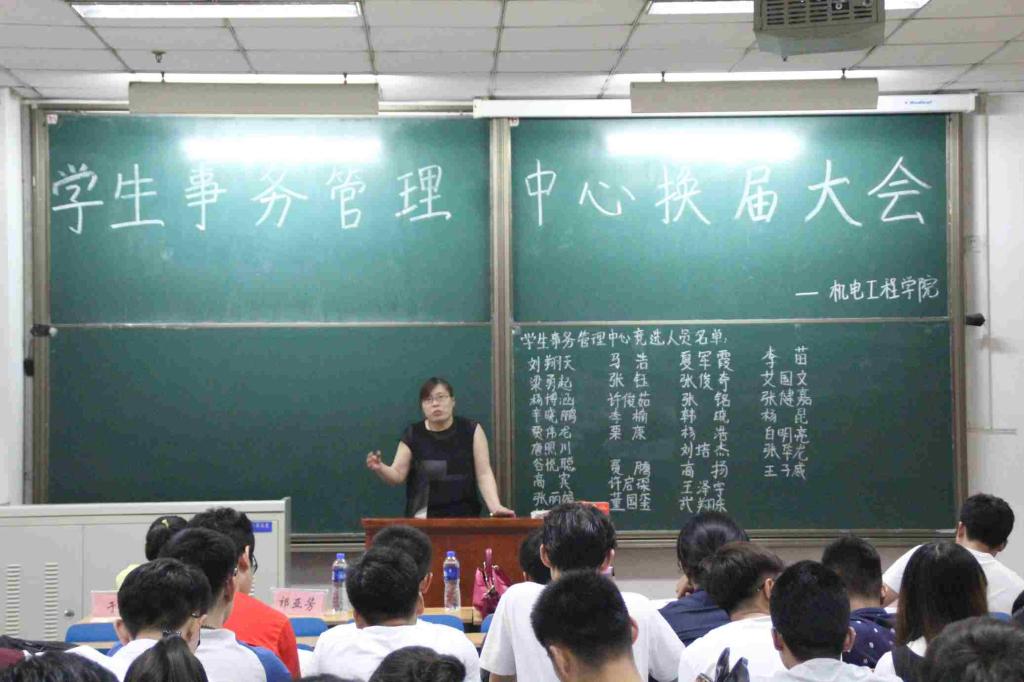 学生事务管理中心换届大会
— 机电工程学院
学生事务管理中心竞选人员名单:
刘翔天 马浩 夏军霞 李苗
梁勇起 张钰 张俊奇 艾国文
杨博涵 许俊茹 张铭 张健嘉
辛晓鹏 李榆 韩琬 杨昆
贾伟龙 栗康 杨浩 白明亮
唐照川 刘培杰 张华龙
谷悦聪 夏鹏 高扬 王子威
高宾 许启琛 王泽宇
张丽娟 董国玺 武翔栋
祁亚芳